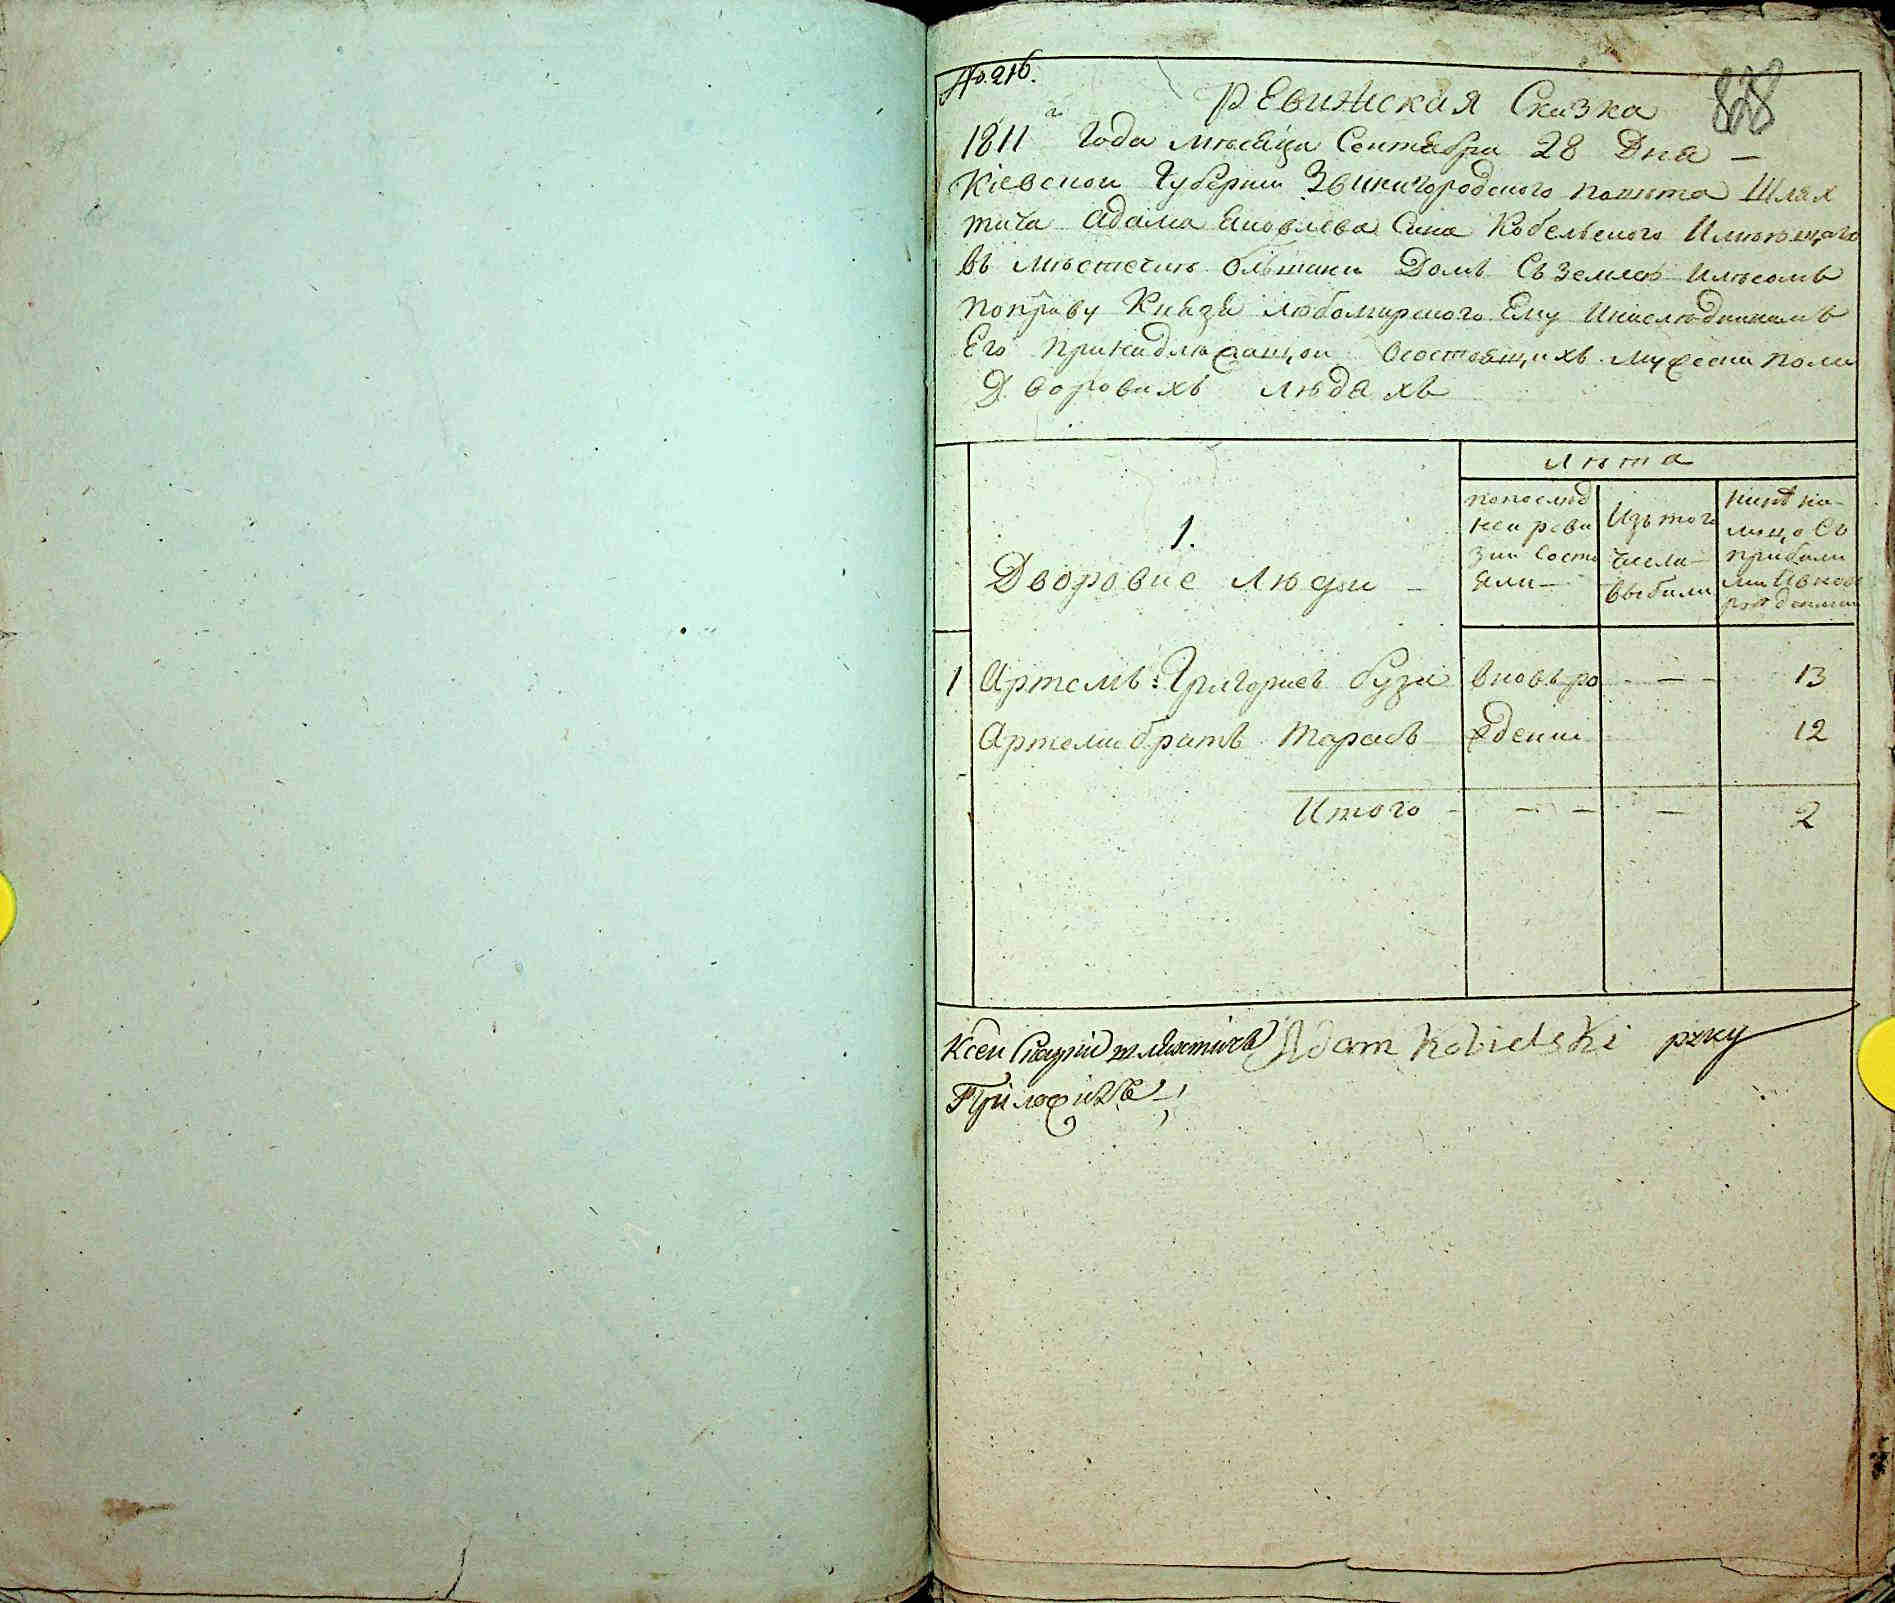 No. 216.
828
Ревижская Сказка
1811 го Года мѣсяца Сентября 28 Дня —
Кіевской Губернии Звинигородского повѣта Шлях
тича Адама Яковлева Сина Кобельского Имеющаго
въ мѣстечке Ольшани Домъ Съ Землею Илѣсомъ
поправу Князя Любомирского Ему Инаследникамъ
Его принадлежащои Осостоящихъ мужеска пола
Дворовихъ людяхъ
Лѣта
1.
Дворовие Люди —
попослѣд
ней реви
зии состо
яли —
Изътого
числа
выбили
нинѣ на-
лицо Съ
прибили
ми Ивнов
рожденими
1 Артемъ Григориев Бузи вновь ро — 13
Артема братъ Тарасъ ждении 12
Итого — — — 2
Ксеи Сказки шляхтичъ Adam Kobielski ręką
Приложилъ